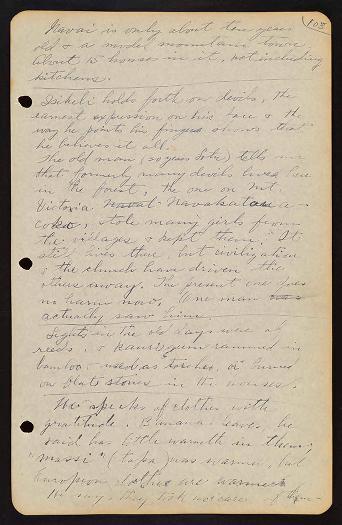 103
Navai is only about ten years
old & a model mountain town
About 12 houses in it, not including
kitchens.
holds forth on devils, the
earnest expression on his face & the
way he points his fingers shows that
he believes it all.
The old man (50 years Sobe) tells me
that formerly many devils lived here
in the forest, the one on Mt.
Victoria Navakatau a-
stole many girls from
the villages & kept them. It
still lives there, but civilization
& the church have driven the
others away. The present one does
no harm now. One man
actually saw him.
Lights in the old days were of
reeds, & kauri gum rammed in
bamboo & used as torches, or burned
on flat stones in the houses.
He speaks of clothes with
gratitude. Banana leaves, he
said has little warmth in them;
"massi" (tapa) was warmer, but
European clothes are warmest
He says they took